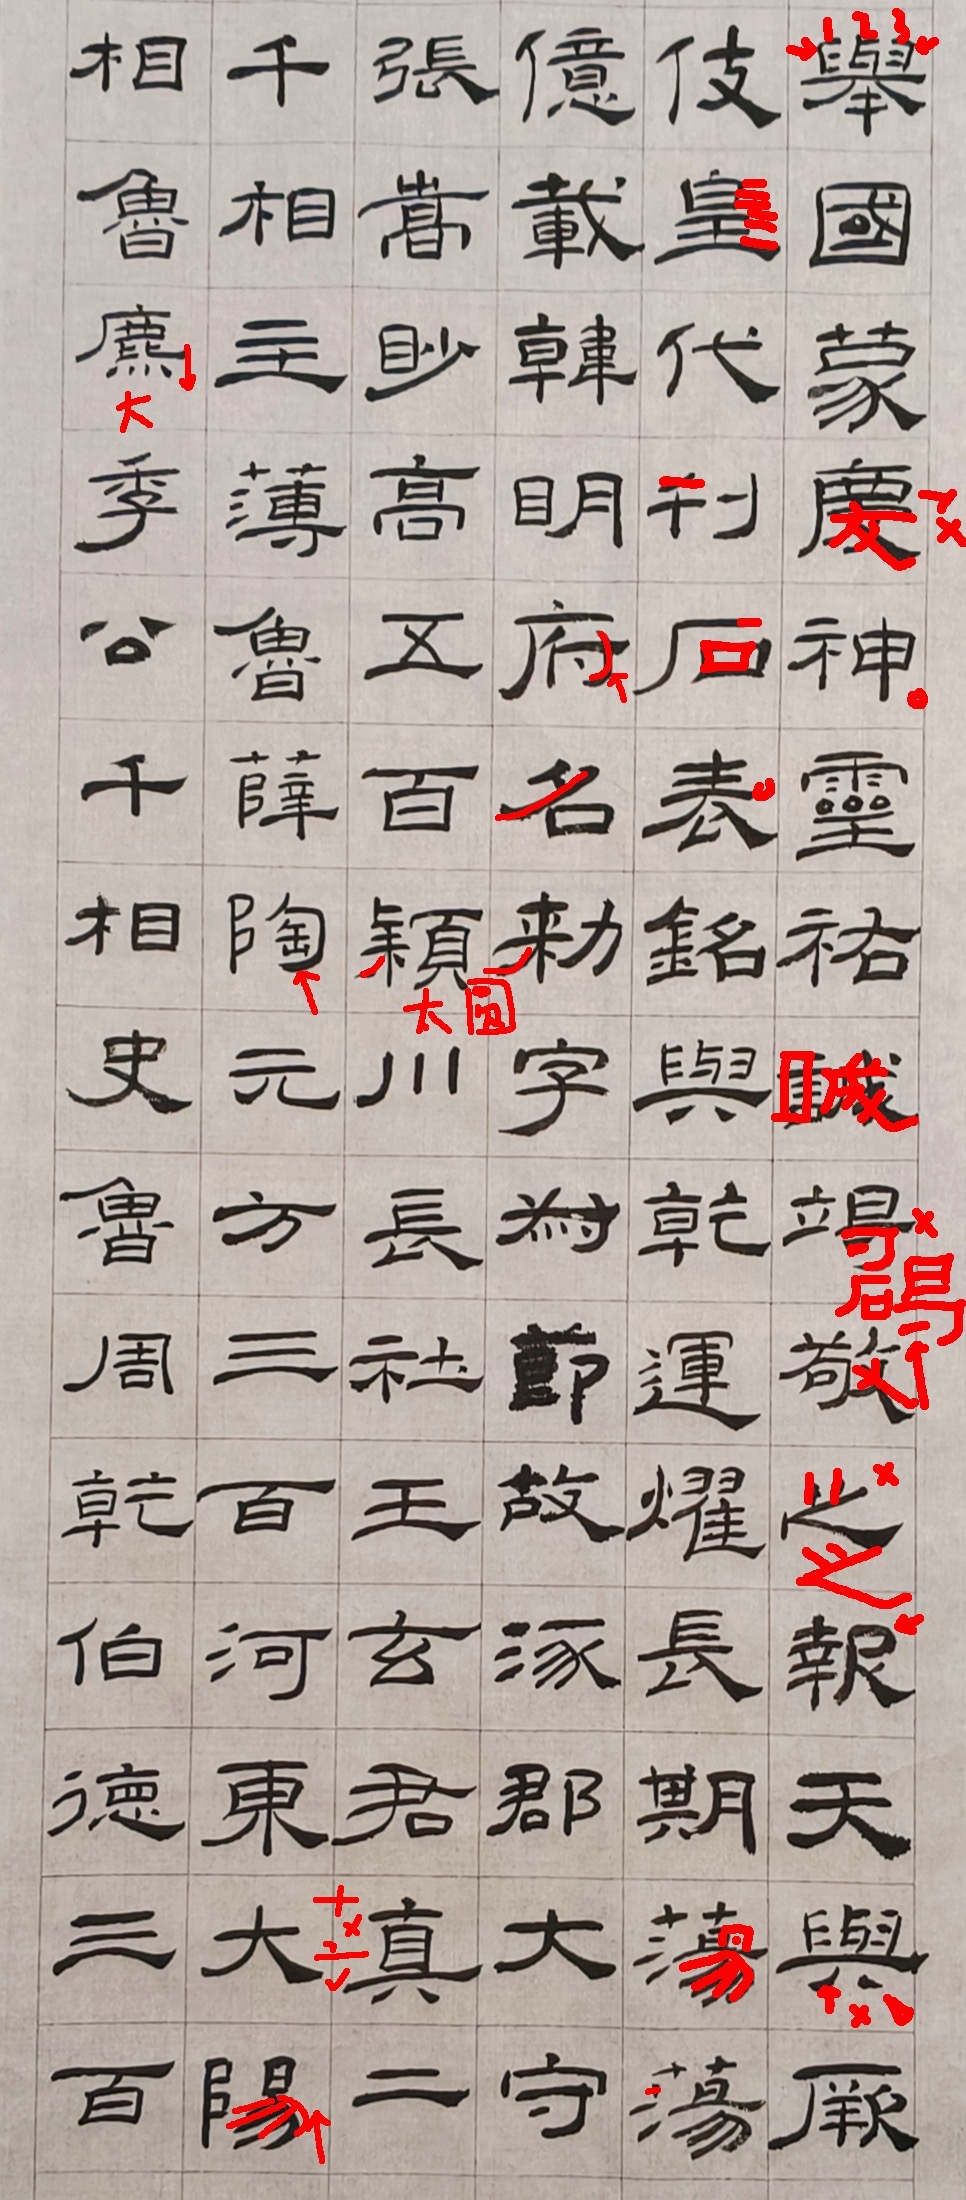 舉國蒙慶神靈祐誠竭敬之報天與厥
伎皇代刊石表銘與乾運燿長期蕩蕩
億載韓明府名勑字叔節故涿郡大守
張嵩眇高五百穎川長社王玄君真二
千相主薄魯薛陶元方三百河東大陽
相魯麃季公千相史魯周乾伯德三百
1 2 3
大
太圆